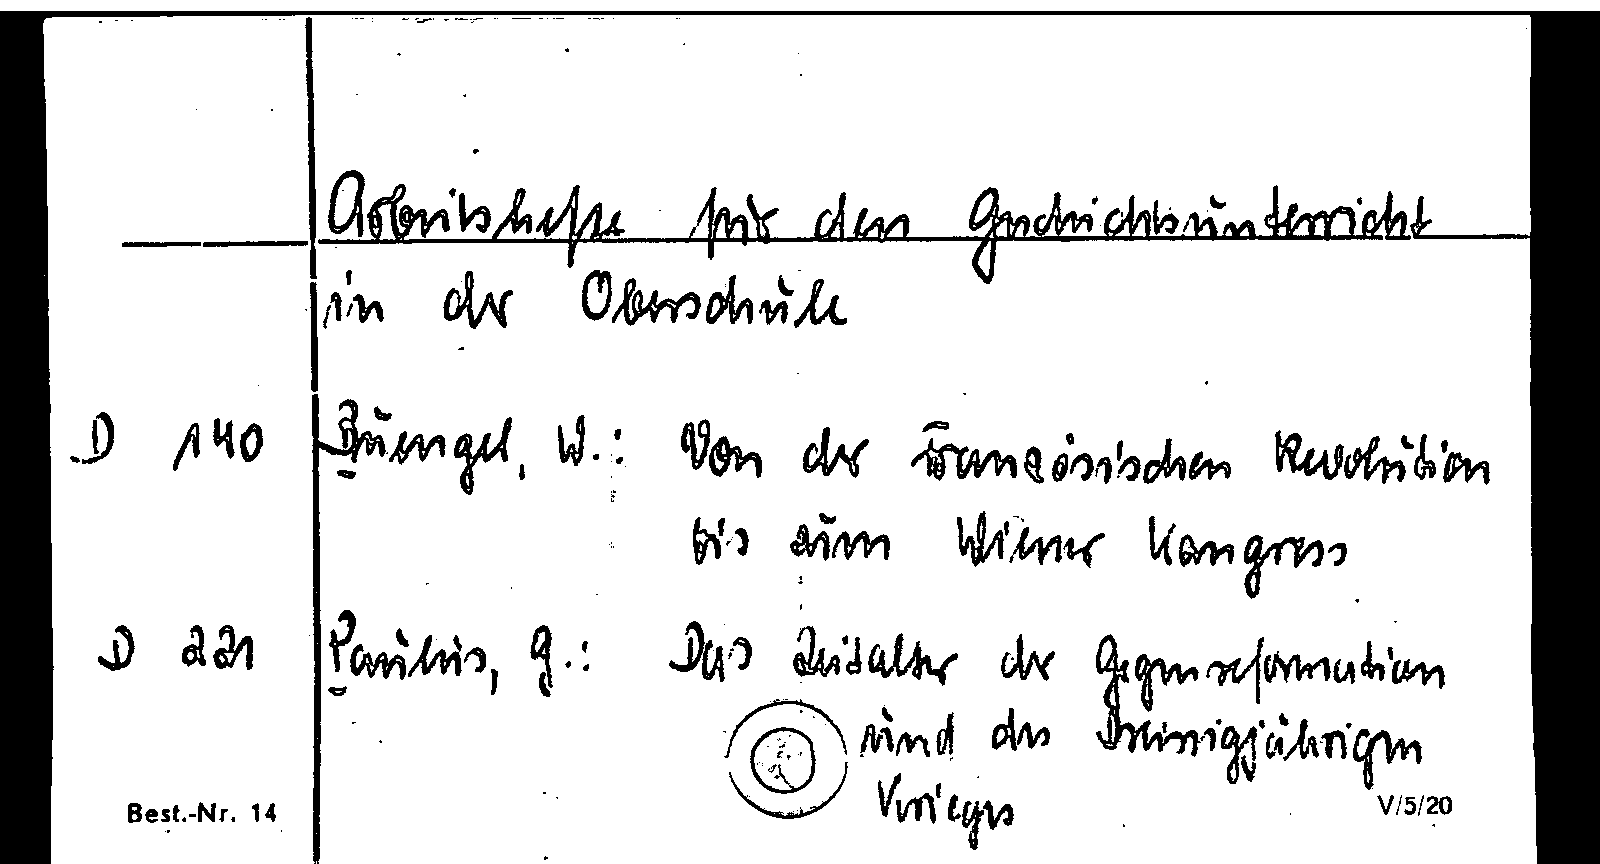 Arbeitshefte für den Geschichtsunterricht
in der Oberschule
D 140 Büengel, W.: Von der Französischen Revolution
bis zum Wiener Kongress
D 221 Paulus, G.: Das Zeitalter der Gegenreformation
und des Dreissigjährigen
Krieges
Best.-Nr. 14 V/5/20